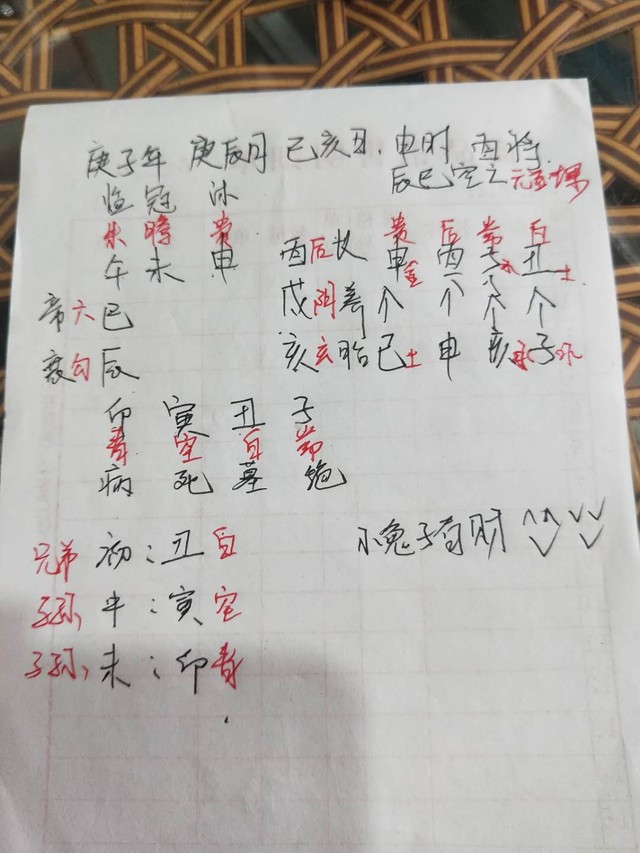 庚子年 庚辰月 己亥日. 申时 酉将
辰巳空亡 元首课
临 冠 沐
朱 螣 贵
午 未 申
酉 后 长 贵 后 常 白
申 金 酉 子 水 丑 土
帝 六 巳
戌 阴 养 个 个 个 个
衰 勾 辰
亥 玄 胎 己 土 申 亥 水 子 水
卯 寅 丑 子
青 空 白 常
病 死 墓 绝
小兔子有财
兄弟 初:丑 白
子孙, 中:寅 空
子孙, 末:卯 青